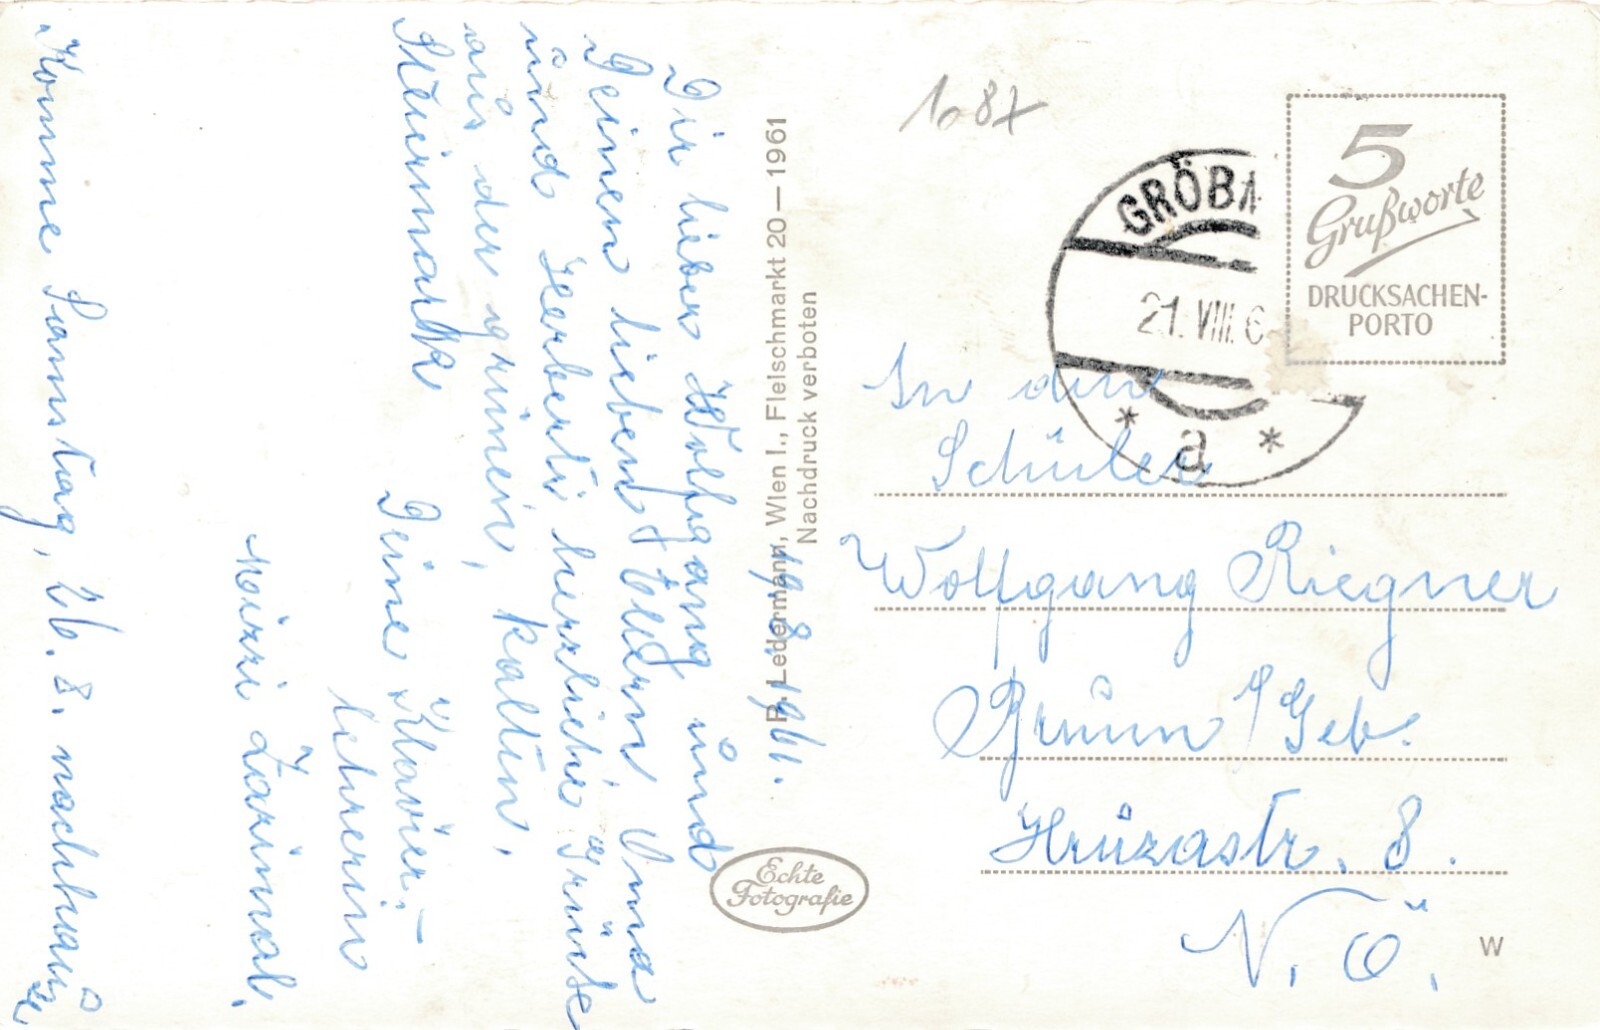 19.8.1961.
Dir lieber Wolfgang und
Deinen lieben Eltern, Oma
und Herberti herzliche Grüße
aus der grünen, kalten,
Steiermark
Deine Klavier-
lehrerin
Moizzi
Komme Samstag, 26. 8. nachhause
P. Ledermann, Wien I., Fleischmarkt 20—1961
Nachdruck verboten
Echte
Fotografie
1687
GRÖBM
21.VIII.6
* a *
5
Grußworte
DRUCKSACHEN-
PORTO
An den
Schüler
Wolfgang Riegner
Brunn a/Geb.
Hrůzastr. 8.
N. Ö.
W